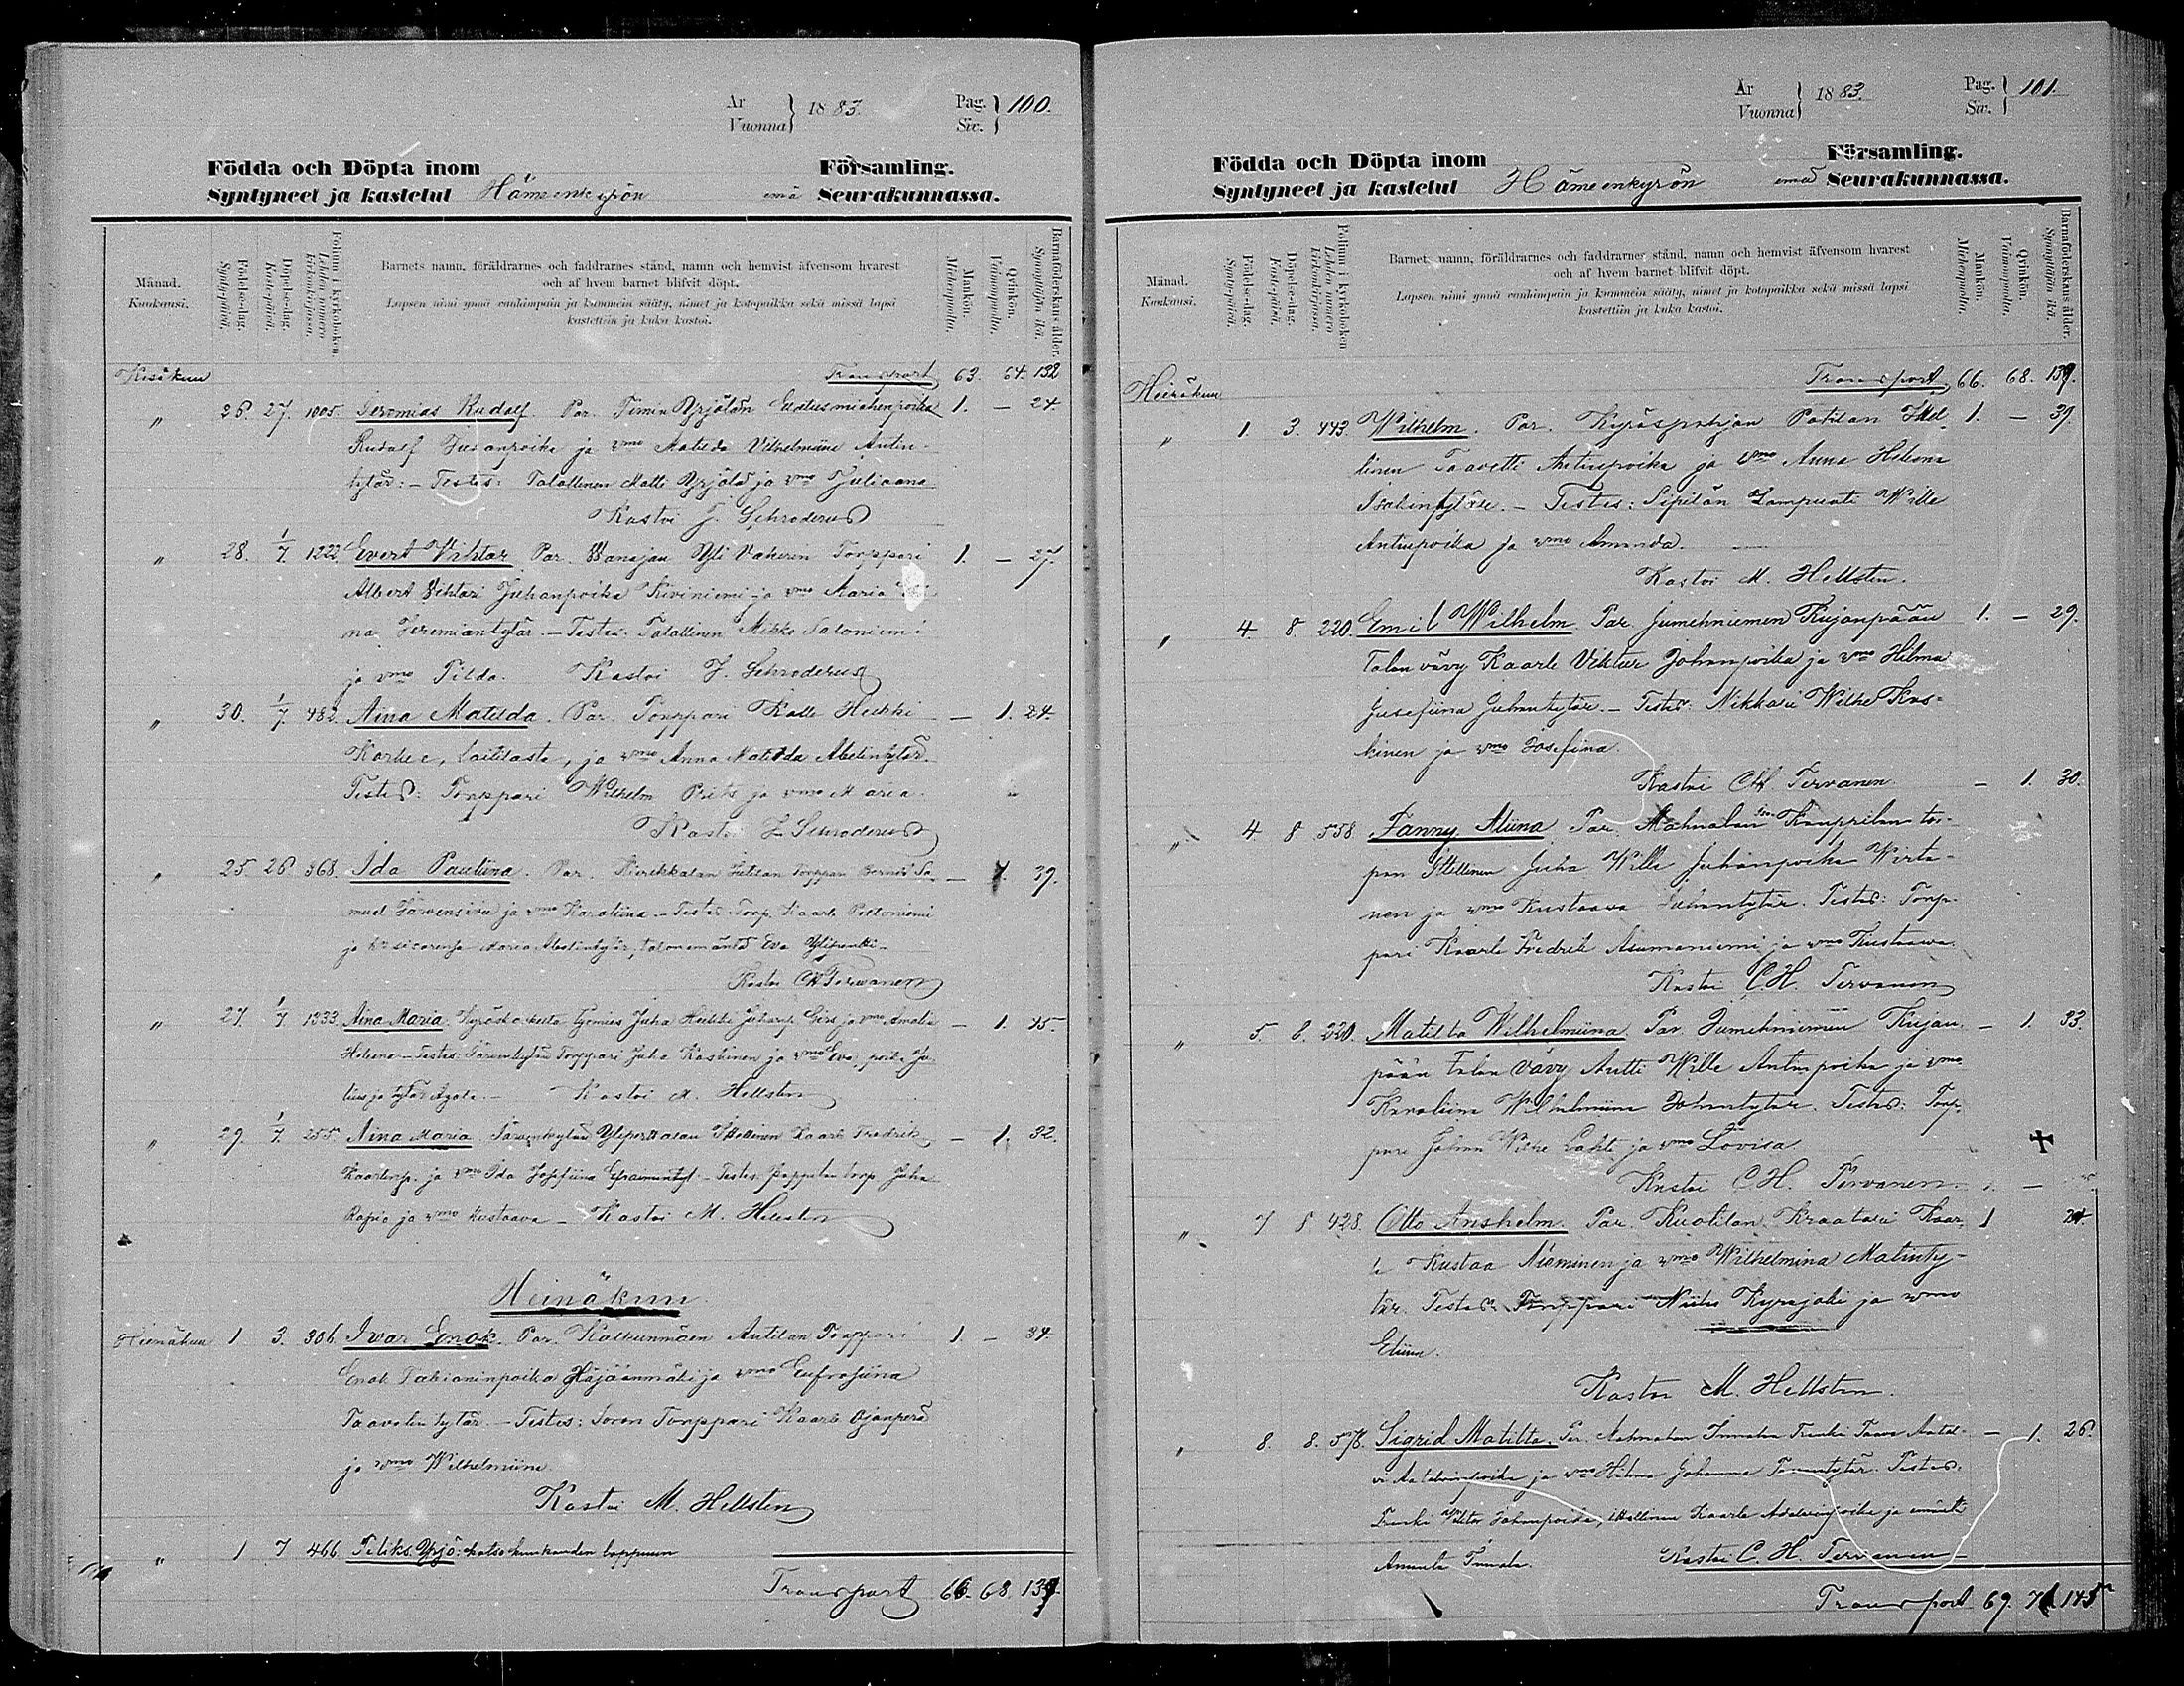 År
Vuonna } 1883.
Pag.
Siv. } 100.
Födda och Döpta inom Församling.
Syntyneet ja kastetut Hämeenkyrön emä Seurakunnassa.
Månad.
Kuukausi.
Födelse-dag.
Syntymä-päivä.
Döpelse-dag.
Kaste-päivä.
Folium i kyrkoboken.
Lehden numero kirkonkirjassa.
Barnets namn, föräldrarnes och faddrarnes stånd, namn och hemvist äfvensom hvarest
och af hvem barnet blifvit döpt.
Lapsen nimi ynnä vanhimpain ja kummein sääty, nimet ja kotopaikka sekä missä lapsi
kastettiin ja kuka kastoi.
Mankön.
Miehenpuolia.
Qvinkön.
Vaimonpuolia.
Barnaföderskans ålder.
Synnyttäjän ikä.
Kesäkuu Transport 63. 64. 132
" 26. 27. 1005. Jeremias Rudolf. Par. Timin Yrjölän 1. — 24.
Rudolf Juhanpoika ja vmo Matilda Vilhelmiina Antin-
tytär. — Testes: Talollinen Matti Yrjölä ja vmo Juliaana
Kastoi J. Schroderus
" 28. 1/7. 1222. Evert Vihtor. Par. Wanajan Yli Vakerin Torppari 1. — 27.
Albert Vihtori Juhanpoika Kiviniemi ja vmo Maria
na Jeremiantytär. — Testes: Talollinen Mikko Saloniemi
ja vmo Tilda. Kastoi J. Schroderus
" 30. 1/7. 482. Aina Matilda. Par. Torppari Kalle Heikki — 1. 24.
Laitilasta, ja vmo Anna Matilda Abelintytär.
Testes: Torppari Wilhelm Prits ja vmo Maria.
Kastoi J. Schroderus
" 25. 26. 368. Ida Pauliina. Par. Torppari Sa- — 1. 39.
muel Järvensivu ja vmo Karoliina. — Testes: Torp. Kaarle Peltoniemi
ja Maria Abelintytär, talonemäntä Eva
Kastoi C.H. Tervanen
" 27. 1/7. 1333. Aina Maria. työmies Juha Heikki ja vmo Amalia — 1. 45.
Helena — Testes: Torppari Juha Koskinen ja vmo Eva, poika Ju-
lius ja tytär Agata. — Kastoi M. Hellsten
" 29. 1/7. 255. Aina Maria. Järvenkylän Yliperttulan Itsellinen Kaarle Fredrik — 1. 32.
Kaarlenp. ja vmo Ida Josefiina Efraimintyt. — Testes: torp. Juha
Rapio ja vmo Kustaava — Kastoi M. Hellsten
Heinäkuu.
Heinäkuu 1 3. 306. Ivar Enok. Par. Kalkunmäen Antilan Torppari 1. — 34.
Enok Fabianinpoika Häijäänmäki ja vmo Eufrosiina
Taavetintytär. — Testes: Torppari Kaarle Ojanperä
ja vmo Wilhelmiina.
Kastoi M. Hellsten
" 1 7 466. Feliks Yrjö: katso kuukauden loppuun
Transport 66. 68. 139.
År
Vuonna } 1883.
Pag.
Siv. } 101.
Födda och Döpta inom Församling.
Syntyneet ja kastetut Hämeenkyrön emä Seurakunnassa.
Månad.
Kuukausi.
Födelse-dag.
Syntymä-päivä.
Döpelse-dag.
Kaste-päivä.
Folium i kyrkoboken.
Lehden numero kirkonkirjassa.
Barnets namn, föräldrarnes och faddrarnes stånd, namn och hemvist äfvensom hvarest
och af hvem barnet blifvit döpt.
Lapsen nimi ynnä vanhimpain ja kummein sääty, nimet ja kotopaikka sekä missä lapsi
kastettiin ja kuka kastoi.
Mankön.
Miehenpuolia.
Qvinkön.
Vaimonpuolia.
Barnaföderskans ålder.
Synnyttäjän ikä.
Heinäkuu Transport 66. 68. 139.
" 1. 3. 443. Wilhelm. Par. Kyröspohjan Patilan Itsel- 1. — 39.
linen Taavetti Antinpoika ja vmo Anna Helena
Iisakintytär. — Testes: Sipilän Lampuoti Wille
Antinpoika ja vmo Amanda.
Kastoi M. Hellsten.
" 4 8 220. Emil Wilhelm. Par. Jumehniemen Kujanpään 1. — 29.
Talon vävy Kaarle Viktor Johanpoika ja vmo Hilma
Josefiina Juhantytär. — Testes: Nikkari Wilhe Kos-
kinen ja vmo Josefiina.
Kastoi C.H. Tervanen
" 4. 8. 558. Fanny Aliina Par. Mahnalan Kauppilan tor- — 1. 30.
pan Itsellinen Juha Wille Juhanpoika Wirta-
nen ja vmo Kustaava Juhantytär. Testes: Torp-
pari Kaarle Fredrik Asumaniemi ja vmo Kustaava.
Kastoi C.H. Tervanen
" 5. 8. 220. Matilta Wilhelmiina. Par. Jumehniemen Kujan- — 1. 33.
pään talon vävy Antti Wille Antinpoika ja vmo
Karoliina Wilhelmiina Johantytär. Testes: Torp-
pari Johan Wilhe Lahti ja vmo Lovisa
Kastoi C.H. Tervanen.
" 7 8 428. Otto Anshelm. Par. Kuotilan Kraatari Kaar- 1 24.
le Kustaa Nieminen ja vmo Wilhelmina Matinty-
tär. Testes: Torppari Niilo Kyrojoki ja vmo
Eliina.
Kastoi M. Hellsten.
" 8. 8. 578. Sigrid Matilta. Par. Mahnalan Innalan Renki Taave Aatal- — 1. 26.
vi Aatalvinpoika ja vmo Hilma Johanna Tomintytär. Testes:
Renki Viktor Johanpoika, itsellinen Kaarle Adalvinpoika ja emäntä
Amanda Innala. Kastoi C.H. Tervanen
Transport 69. 71. 145